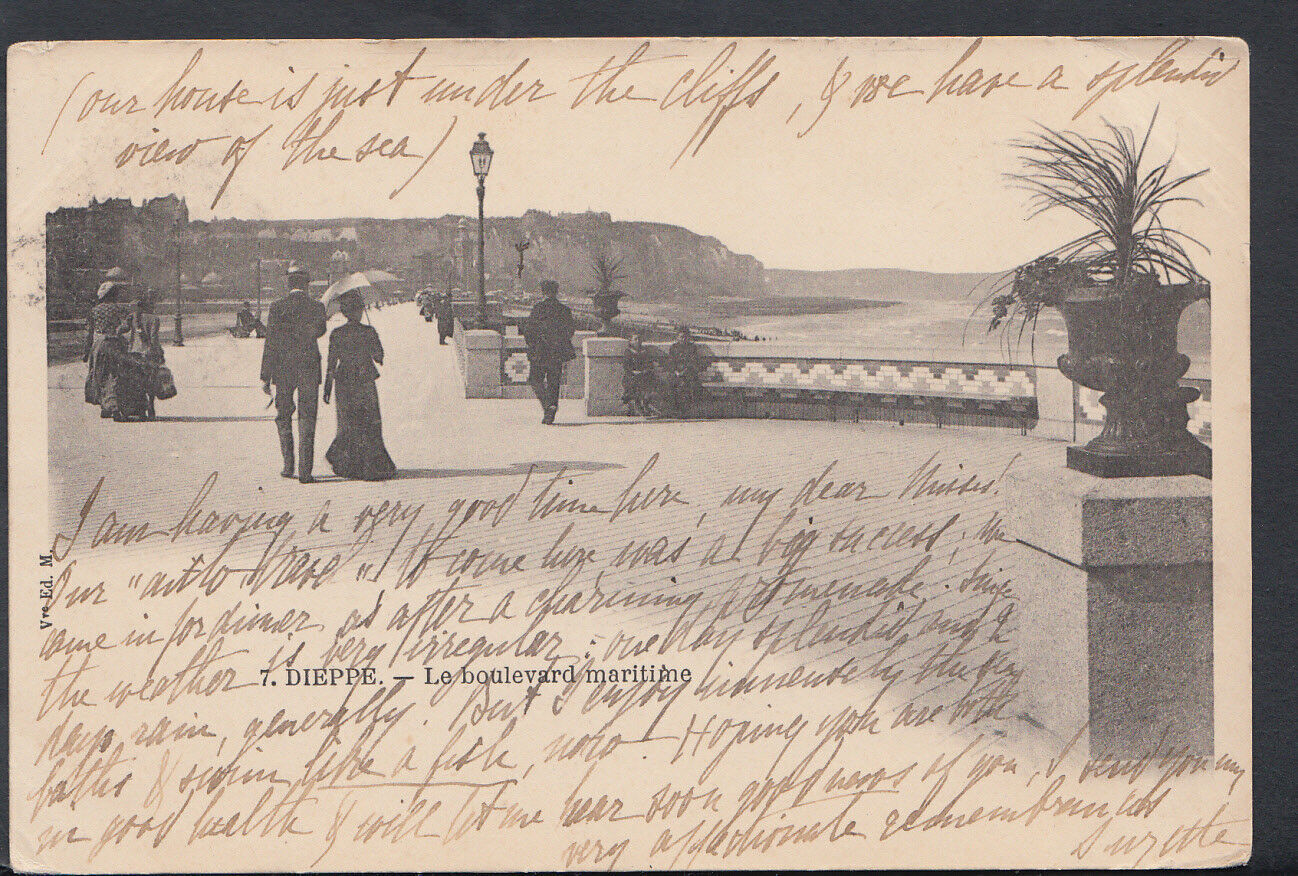 (our house is just under the cliffs, & we have a splendid
view of the sea)
I am having a very good time here, my dear
Our "auto to come here was a big success; We
came in for dinner, as after a charming promenade. Since
the weather is very irregular: one day splendid, and 2
days rain, generally. But I enjoy immensely the
baths & swim like a fish, now. Hoping you are both
in good health & will let me hear soon good news of you, I send you my
very affectionate remembrances
Suzette
7. DIEPPE. — Le boulevard maritime
Vve Ed. M.